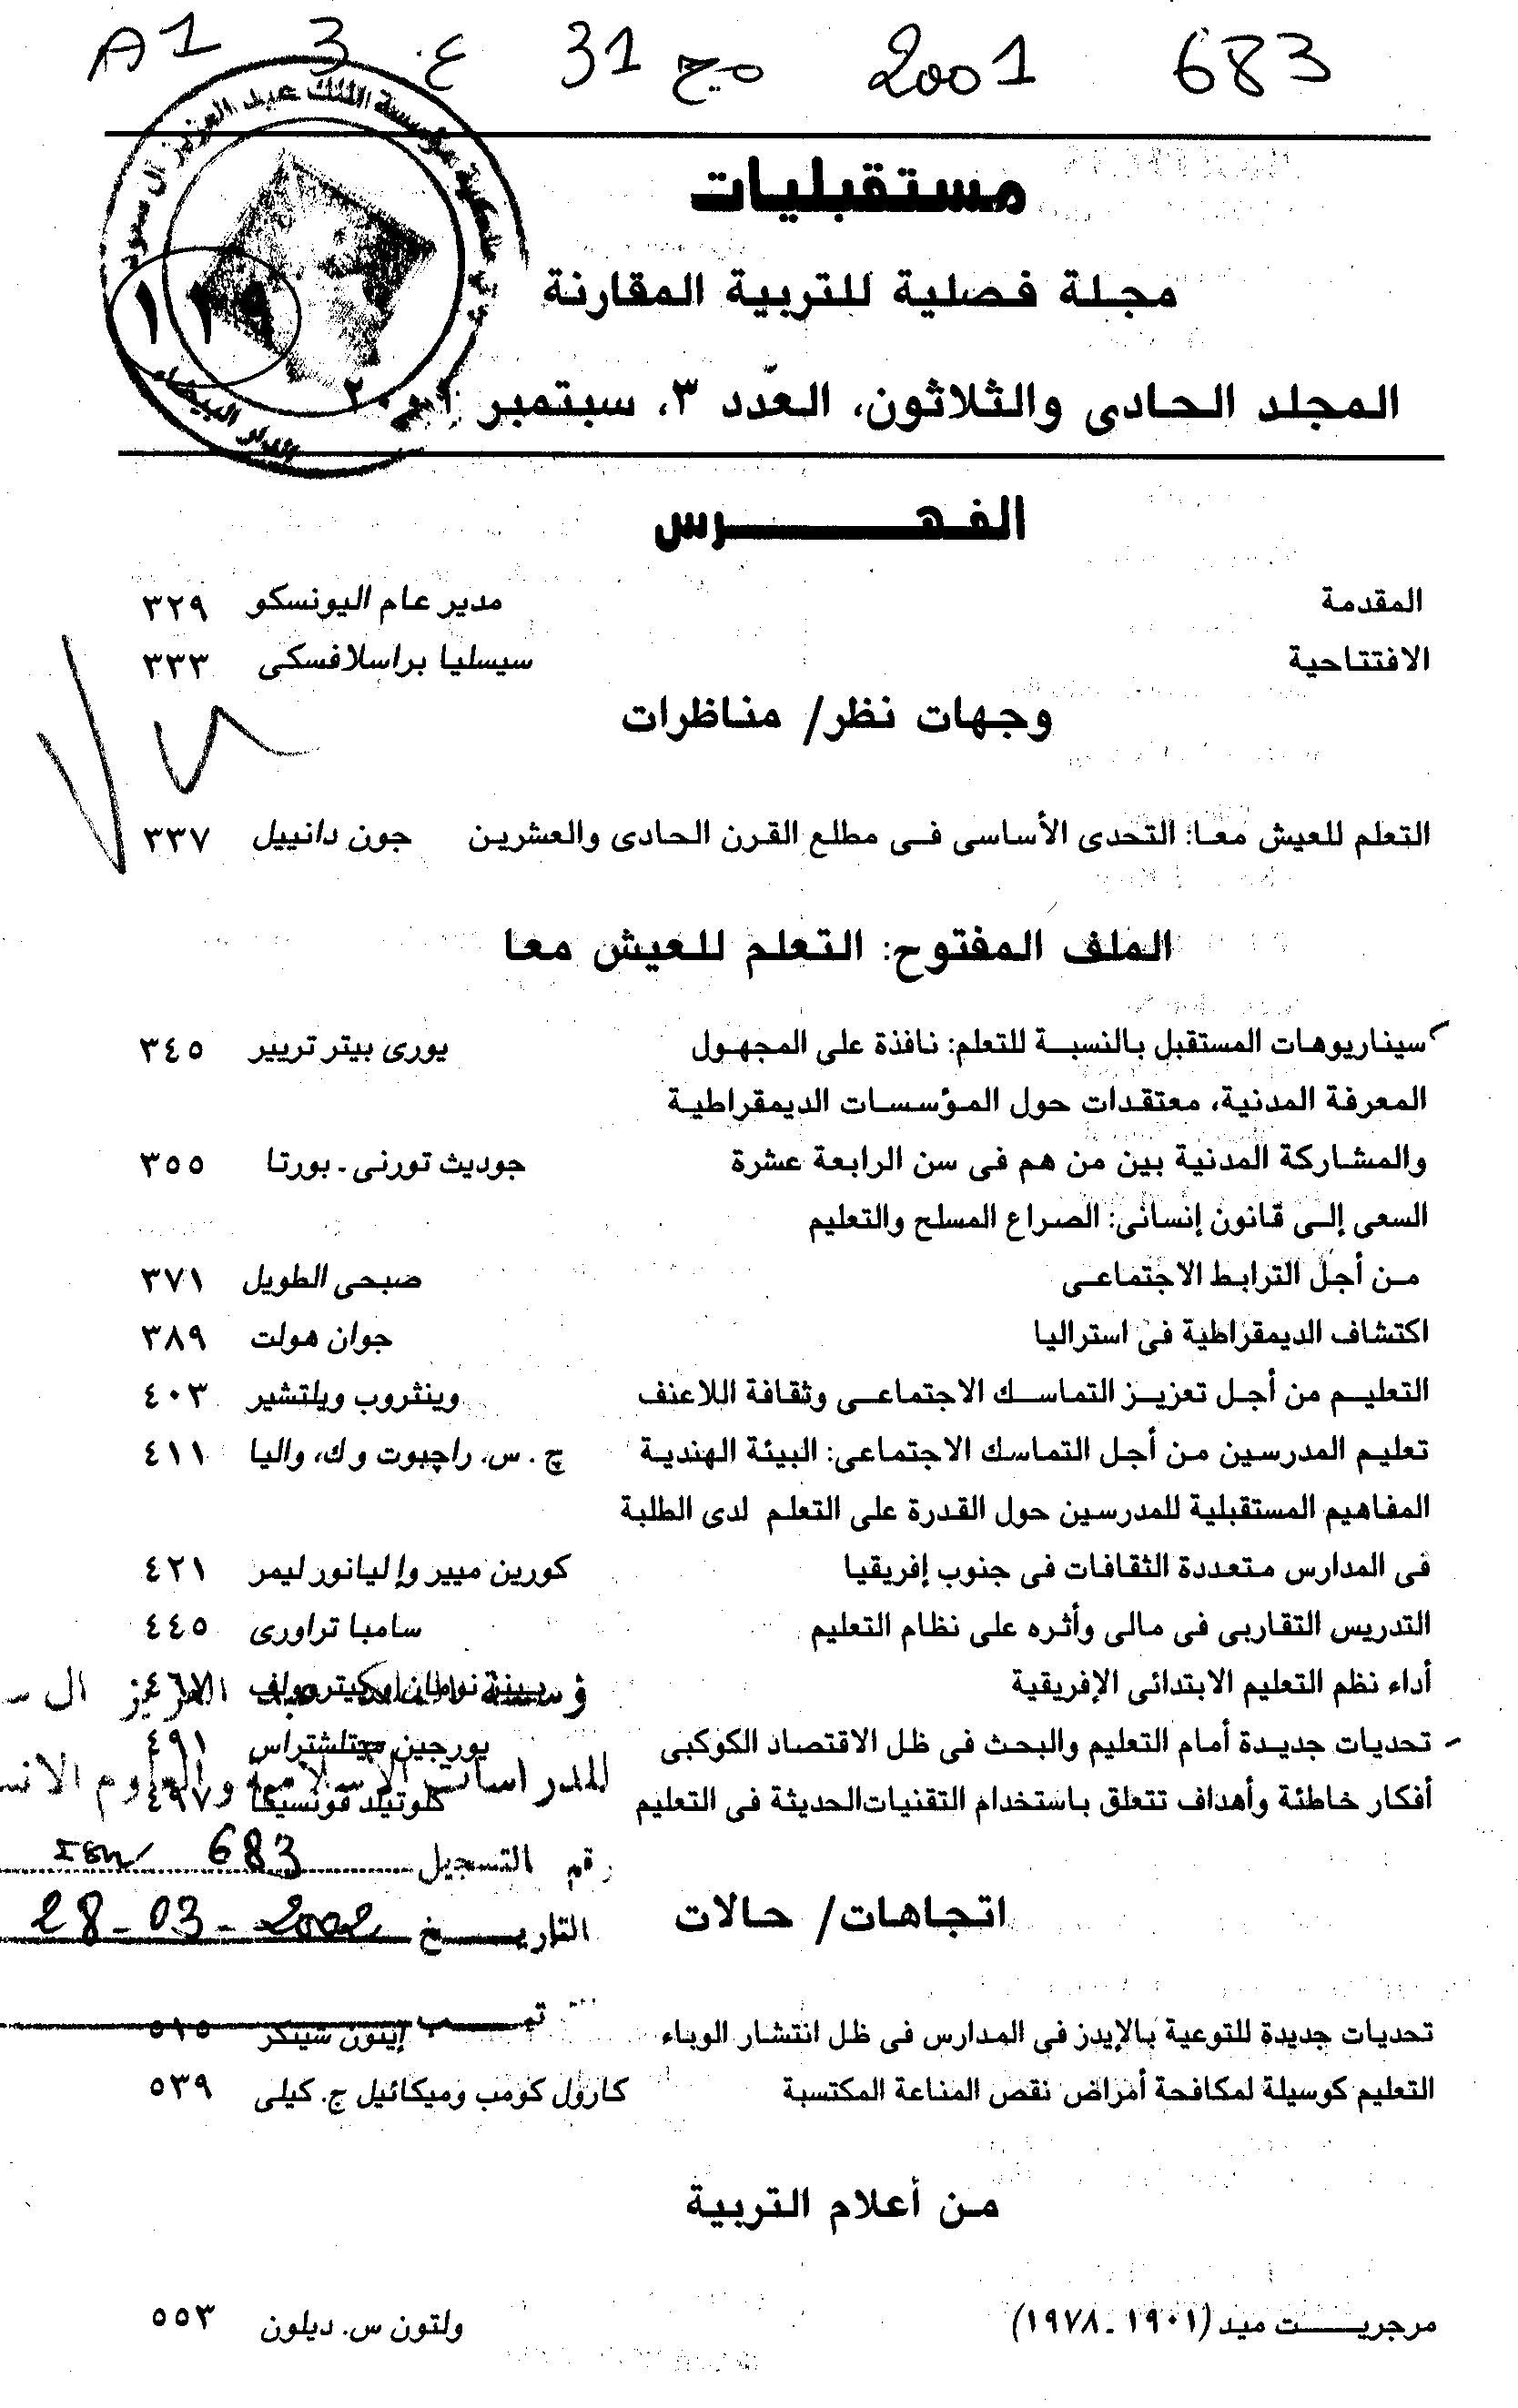 A1 3 ع. 31 مج 2001 683
مستقبليات
مجلة فصلية للتربية المقارنة
المجلد الحادى والثلاثون، العدد ٣، سبتمبر ٢٠٠١
١١٩
الفهرس
المقدمة مدير عام اليونسكو ٣٢٩
الافتتاحية سيسليا براسلافسكى ٣٣٣
وجهات نظر/ مناظرات
التعلم للعيش معا: التحدى الأساسى فى مطلع القرن الحادى والعشرين جون دانييل ٣٣٧
الملف المفتوح: التعلم للعيش معا
سيناريوهات المستقبل بالنسبة للتعلم: نافذة على المجهول يورى بيتر تريير ٣٤٥
المعرفة المدنية، معتقدات حول المؤسسات الديمقراطية
والمشاركة المدنية بين من هم فى سن الرابعة عشرة جوديث تورنى - بورتا ٣٥٥
السعى إلى قانون إنسانى: الصراع المسلح والتعليم
من أجل الترابط الاجتماعى صبحى الطويل ٣٧١
اكتشاف الديمقراطية فى استراليا جوان هولت ٣٨٩
التعليم من أجل تعزيز التماسك الاجتماعى وثقافة اللاعنف وينثروب ويلتشير ٤٠٣
تعليم المدرسين من أجل التماسك الاجتماعى: البيئة الهندية چ. س. راچبوت و ك، واليا ٤١١
المفاهيم المستقبلية للمدرسين حول القدرة على التعلم لدى الطلبة
فى المدارس متعددة الثقافات فى جنوب إفريقيا كورين ميير وإليانور ليمر ٤٢١
التدريس التقاربى فى مالى وأثره على نظام التعليم سامبا تراورى ٤٤٥
أداء نظم التعليم الابتدائى الإفريقية ٤٦٧
تحديات جديدة أمام التعليم والبحث فى ظل الاقتصاد الكوكبى يورجين ميتلشتراس ٤٩١
أفكار خاطئة وأهداف تتعلق باستخدام التقنيات الحديثة فى التعليم كلوتيلد فونسيكا ٤٩٧
رقم التسجيل 683
التاريخ 28-03-2002
اتجاهات/ حالات
تحديات جديدة للتوعية بالإيدز فى المدارس فى ظل انتشار الوباء إينون شينكر ٥١٥
التعليم كوسيلة لمكافحة أمراض نقص المناعة المكتسبة كارول كومب وميكائيل ج. كيلى ٥٣٩
من أعلام التربية
مرجريت ميد (١٩٠١ - ١٩٧٨) ولتون س. ديلون ٥٥٣